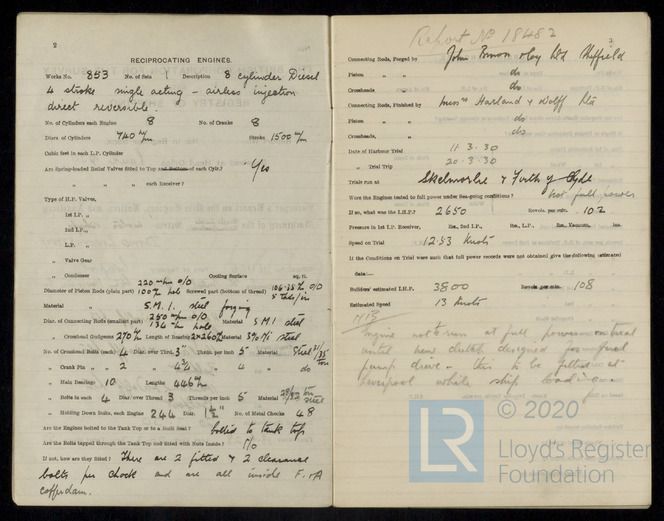 2
RECIPROCATING ENGINES.
Works No. 853 No. of Sets 1 Description 8 cylinder Diesel
4 stroke single acting - airless injection
direct reversible.
No. of Cylinders each Engine 8 No. of Cranks 8
Diars. of Cylinders 740 m/m Stroke 1500 m/m
Cubic feet in each L.P. Cylinder
Are Spring-loaded Relief Valves fitted to Top and Bottom of each Cylr.? Yes
„ „ „ each Receiver?
Type of H.P. Valves,
1st I.P. „
2nd I.P. „
L.P. „
Valve Gear
„ Condenser Cooling Surface sq. ft.
Diameter of Piston Rods (plain part) 220 m/m O/D 100 m/m hole Screwed part (bottom of thread) O/D
Material „ S.M.I. steel forging
Diar. of Connecting Rods (smallest part) 250 m/m O/D 134 m/m hole Material S.M.I steel
„ Crosshead Gudgeons 270 m/m Length of Bearing 2×260 m/m Material steel
No. of Crosshead Bolts (each) 4 Diar. over Thrd. 3 Thrds. per inch 5 Material Steel 31/35 ton
„ Crank Pin „ „ 2 „ 4¾ „ 4 „ do
„ Main Bearings 10 Lengths 446 m/m
„ Bolts in each 4 Diar. over Thread 3 Threads per inch 5 Material 28/32 ton steel
„ Holding Down Bolts, each Engine 244 Diar. 1½" No. of Metal Chocks 48
Are the Engines bolted to the Tank Top or to a Built Seat? bolted to tank top
Are the Bolts tapped through the Tank Top and fitted with Nuts Inside? No
If not, how are they fitted? There are 2 fitted & 2 clearance
bolts per chock and are all inside F. & A
cofferdam.
Report No 18482
3
Connecting Rods, Forged by John Brown & Coy Ltd Sheffield
Piston „ „ do
Crossheads „ do
Connecting Rods, Finished by Messrs Harland & Wolff Ltd
Piston „ „ do
Crossheads, „ do
Date of Harbour Trial 11.3.30
„ Trial Trip 20.3.30
Trials run at Skelmorlie & Firth of Clyde
Were the Engines tested to full power under Sea-going conditions? Not full power
If so, what was the I.H.P.? 2650 Revols. per min. 102
Pressure in 1st I.P. Receiver, lbs., 2nd I.P., lbs., L.P., lbs., Vacuum, ins.
Speed on Trial 12.53 Knots
If the Conditions on Trial were such that full power records were not obtained give the following estimated
data:—
Builders' estimated I.H.P. 3800 Revols. per min. 108
Estimated Speed 13 Knots
Engine not to run at full power on trial
until new clutch designed for fuel
pump drive - this to be fitted at
Liverpool while ship loading.
© 2020
LR
Lloyd's Register
Foundation